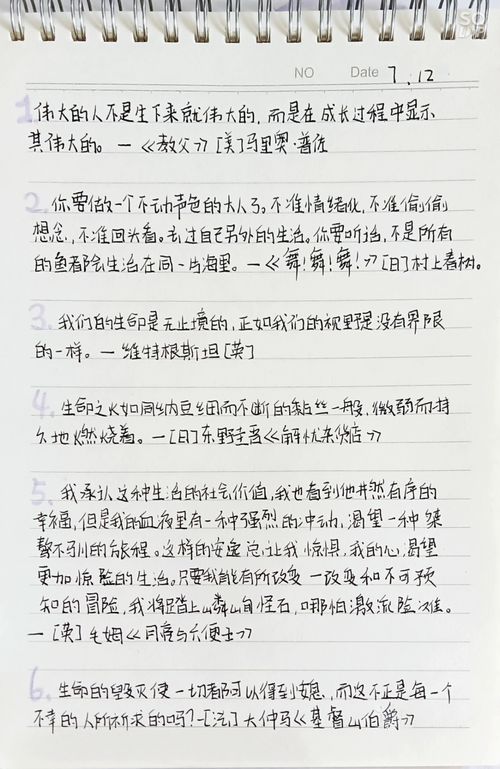 NO Date 7.12
1 伟大的人不是生下来就伟大的，而是在成长过程中显示
其伟大的。—《教父》[美]马里奥·普佐
2. 你要做一个不动声色的大人了。不准情绪化，不准偷偷
想念，不准回头看。去过自己另外的生活。你要听话，不是所有
的鱼都会生活在同一片海里。—《舞！舞！舞！》[日]村上春树。
3. 我们的生命是无止境的，正如我们的视野是没有界限
的一样。— 维特根斯坦[英]
4. 生命之火如同纳豆细而不断的黏丝一般，微弱而持
久地燃烧着。—[日]东野圭吾《解忧杂货店》
5. 我承认这种生活的社会价值，我也看到他井然有序的
幸福，但是我的血液里有一种强烈的冲动，渴望一种桀
骜不驯的旅程。这样的安逸总让我惊惧，我的心渴望
更加惊险的生活。只要我能有所改变 一改变和不可预
知的冒险，我将踏上嶙峋怪石，哪怕激流险滩。
—[英]毛姆《月亮与六便士》
6. 生命的毁灭使一切都可以得到安息，而这不正是每一个
不幸的人所祈求的吗？-[法]大仲马《基督山伯爵》